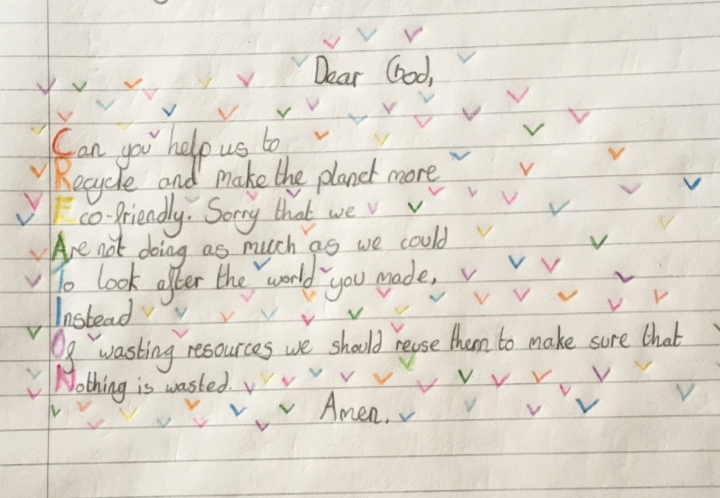 Dear God,
Can you help us to
Recycle and make the planet more
Eco-friendly. Sorry that we
Are not doing as much as we could
To look after the world you made,
Instead
Of wasting resources we should reuse them to make sure that
Nothing is wasted.
Amen.